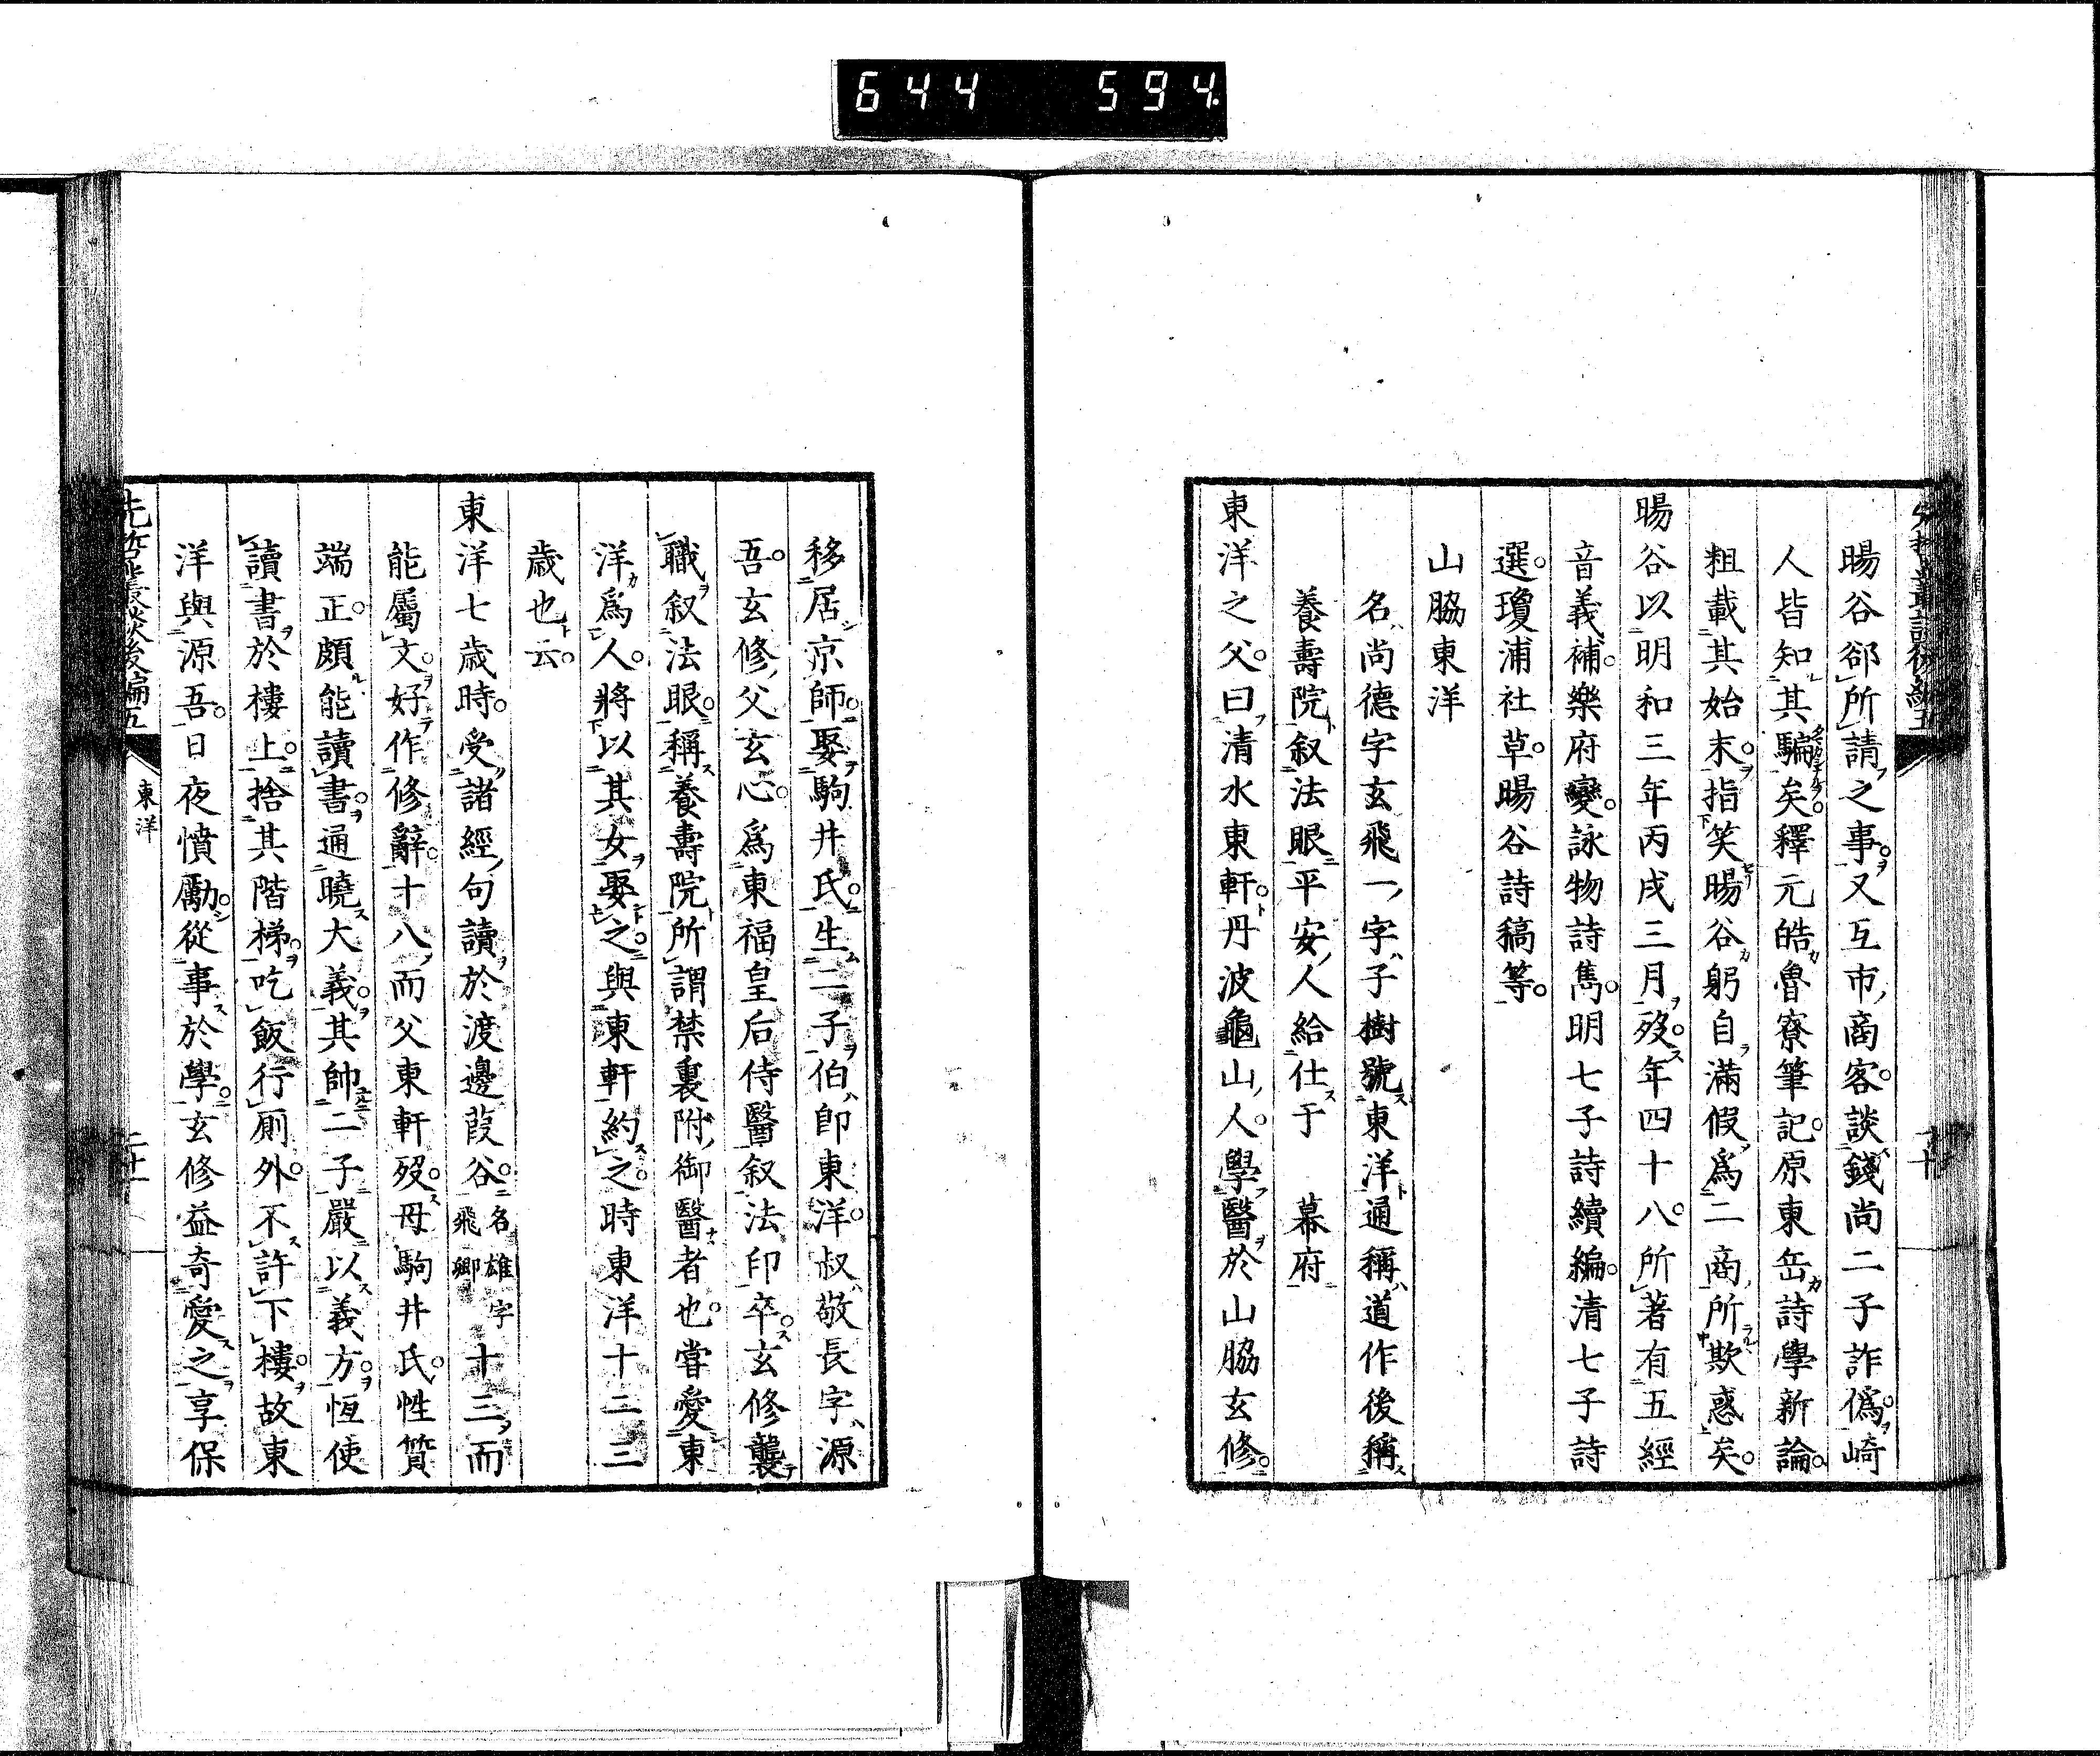 644 594.
暘谷郤所請之事。又互市商客。談錢尚二子詐偽。崎
人皆知其騙矣。釋元皓魯寮筆記。原東岳詩學新論。
粗載其始末。指笑暘谷躬自滿假爲二商所欺惑矣。
暘谷以明和三年丙戌三月歿。年四十八。所著有五經
音義補。樂府變。詠物詩雋。明七子詩續編。清七子詩
選。瓊浦社草。暘谷詩稿等。
山脇東洋
名尚德字玄飛一字子樹號東洋通稱道作後稱
養壽院叙法眼平安人給仕于　幕府
東洋之父。曰清水東軒。丹波龜山人。學醫於山脇玄修。
移居京師。娶駒井氏。生二子伯即東洋。叔敬長字源
吾。玄修父玄心。爲東福皇后侍醫叙法印卒。玄修襲
職叙法眼。稱養壽院所謂禁裏附御醫者也。嘗愛東
洋爲人。將以其女娶之。與東軒約之。時東洋十二三
歲也云。
東洋七歲時。受諸經句讀於渡邊葭谷。名雄字飛卿十三而
能屬文。好作修辭。十八而父東軒歿。母駒井氏。性質
端正。頗能讀書。通曉大義。其帥二子嚴以義方。恆使
讀書於樓上。捨其階梯。吃飯行厠外。不許下樓。故東
洋與源吾。日夜憤勵。從事於學。玄修益奇愛之享保
先哲叢談後編五
東洋
二十一